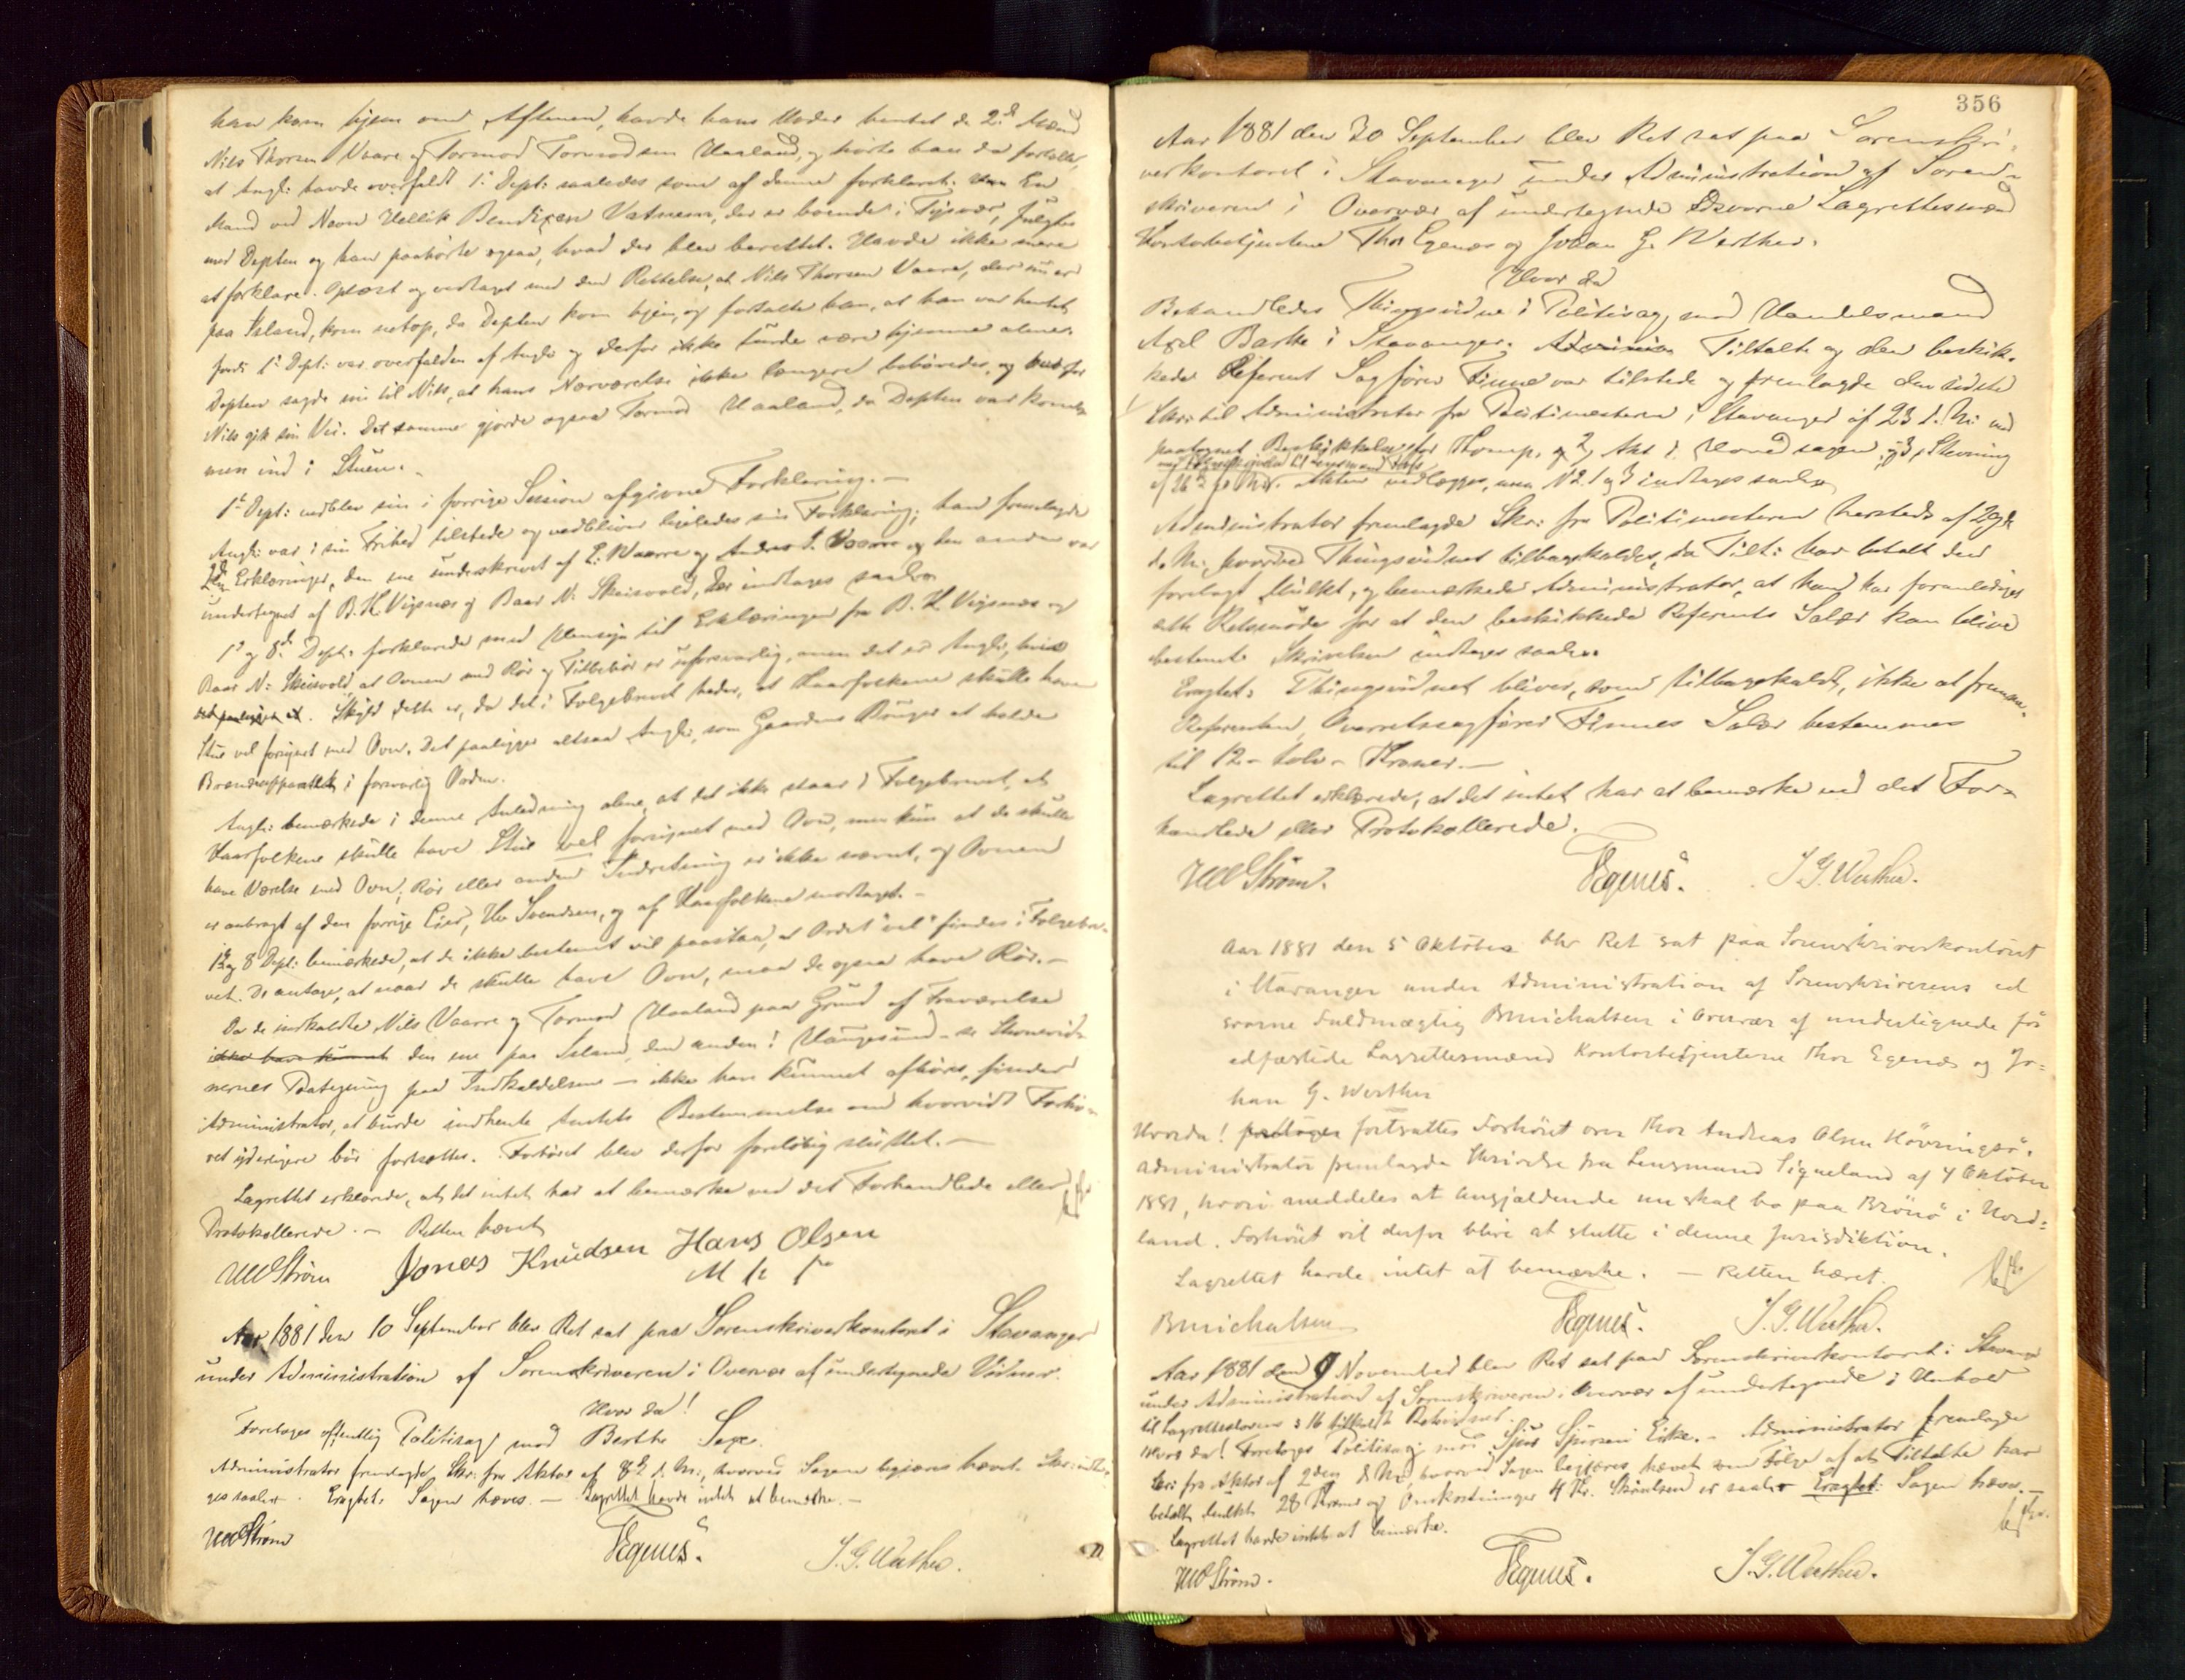 han kom hjem om Aftenen, havde hans Moder hentet de 2de Mænd
Nils Thorsen Vaare og Tormod Tormodsen Haaland, og hørte han da fortælle,
at Angl: havde overfaldt 1ste Dept: saaledes som af denne forklaret. En
Mand ved Navn Vellik Bendixen Vatnem, der er boende i Tysvær, fulgte
med Depten og han paahørte ogsaa, hvad der blev berettet. Havde ikke mere
at forklare. Oplæst og vedtaget med den Rettelse, at Nils Thorsen Vaare, der nu er
paa Island, kom netop, da Depten kom hjem, og fortalte han, at han var hentet
fordi 1ste Dept: var overfalden af Angl: og derfor ikke turde være hjemme alene.
Depten sagde nu til Nils, at hans Nærværelse ikke længere behøvedes, og
Nils gik sin Vei. Det samme gjorde ogsaa Tormod Haaland, da Depten var kom-
men ind i Stuen. -
1ste Dept: vedblev sin i forrige Session afgivne Forklaring. -
Angl: var i sin Frihed tilstede og vedbliver ligeledes sin Forklaring; han fremlagde
2de Erklæringer, den ene underskrevet af E. Waarre og Andreas J. Vaarre og den anden var
undertegnet af B. H. Vigsnæs og Baar N. Skeisvold, der indtages saal:
1ste og 8de Dept: forklarede med Hensyn til Erklæringen fra B. H. Vigsnæs og
Baar N: Skeisvold, at Ovnen med Rør og Tilbehør er uforsvarlig, men det er Angl:, hvis
Skyld dette er, da det i Følgebrevet heder, at Kaarfolkene skulle have
Stue vel forsynet med Ovn. Det paaligger altsaa Angl:, som Gaardens Bruger at holde
Brændeapparatet i forsvarlig Orden.
Angl: bemærkede i denne Anledning alene, at det ikke staar i Følgebrevet, at
Kaarfolkene skulle have Stue vel forsynet med Ovn, men kun at de skulle
have Værelse med Ovn; Rør eller anden Indretning er ikke nævnt, og Ovnen
er anbragt af den forrige Eier, Ole Svendsen, og af Kaarfolkene modtaget. -
1ste og 8 Dept: bemærkede, at de ikke bestemt vil paastaa, at Ordet "vel" findes i Følgebre-
vet. De antage, at naar de skulle have Ovn, maa de ogsaa have Rør. -
Da de indkaldte Nils Vaarre og Tormod Haaland paa Grund af Fraværelse
ikke have kunnet den ene paa Island, den anden i Haugesund - se Stævnevid-
nernes Paategning paa Indkaldelsen - ikke har kunnet afhøres, finder
Administrator, at burde indhente Amtets Bestemmelse om hvorvidt Forhø-
ret yderligere bør fortsættes. Forhøret blev derfor foreløbig sluttet. -
Lagrettet erklærede, at det intet har at bemærke ved det Forhandlede eller
Protokollerede. - Retten hævet
Strøm Jonas Knudsen Hans Olsen
M p P
Aar 1881 den 10 September blev Ret sat paa Sorenskriverkontoret i Stavanger
under Administration af Sorenskriveren i Overvær af undertegnede Vidner.
Hvor da!
Foretoges offentlig Politisag mod Berthe
Administrator fremlagde Skr: fra Aktor af 8de d. M:, hvorved Sagen begjæres hævet. Skr: indta-
ges saal: Eragtet: Sagen hæves. - Lagrettet havde intet at bemærke. -
Strøm TEgenes. J. G. Werther.
356
Aar 1881 den 30 September blev Ret sat paa Sorenskri-
verkontoret i Stavanger under Administration af Soren-
skriveren i Overvær af undertegnede Edsvorne Lagrettesmænd
Kontorbetjentene Thor Egenæs og Johan G. Werther.
Hvor da
Behandledes Thingsvidne i Politisag mod Handelsmand
Axel Barth i Stavanger. Tiltalte og den beskik-
kede Referent Sagfører Finne var tilstede og fremlagde den sidste
Skr: til Administrator fra Politimesteren i Stavanger af 23 d. M: med
paategnet Beskikkelse for Komp. og 2, Akt i Hovedsagen, og 3, Stævning
af 26de Aktene vedlægges, men N 2. 1 og 3 indtages saal:
Administrator fremlagde Skr: fra Politimesteren hersteds af 29de
d. M:, hvorved Thingsvidnet tilbagekaldes, da Tilt: har betalt den
forelagte Mulkt, og bemærkede Administrator, at han har foranlediget
dette Retsmøde for at den beskikkede Referents Salær kan blive
bestemt. Skrivelsen indtages saal:
Eragtet: Thingsvidnet bliver, som tilbagekaldt, ikke at fremme.
Referenten, Overretssagfører Finnes Salær bestemmes
til 12 - tolv - Kroner. -
Lagrettet erklærede, at det intet har at bemærke ved det For-
handlede eller Protokollerede.
Strøm. TEgenes. J. G. Werther.
Aar 1881 den 5 Oktober blev Ret sat paa Sorenskriverkontoret
i Stavanger under Administration af Sorenskriverens ed
svorne Fuldmægtig B Michalsen i Overvær af undertegnede før
edfæstede Lagrettesmænd Kontorbetjentene Thor Egenæs og Jo=
han G. Werther
Hvorda! foretoges fortsattes Forhøret over Thor Andreas Olsen Høvringsø.
Administrator fremlagde Skrivelse fra Lensmand Sigveland af 4 Oktober
1881, hvori meddeles at Angjældende nu skal bo paa Brønø i Nord=
land. Forhøret vil derfor blive at slutte i denne Jurisdiktion.
Lagrettet havde intet at bemærke. - Retten hævet.
B Michalsen TEgenes. J. G. Werther.
Aar 1881 den 9 November blev Ret sat paa Sorenskriverkontoret i Stavanger
under Administration af Sorenskriveren i Overvær af undertegnede i Henhold
til Lagretteslovens § 16 tilkaldte Retsvidner.
Hvor da! Foretoges Politisag mod Sjur Sjursen Eike. - Administrator fremlagde
Skr: fra Aktor af 2den d. M:, hvorved Sagen begjæres hævet som Følge af at Tiltalte har
betalt Mulkt 28 Kroner og Omkostninger 4 Kr. Skrivelsen er saal: Eragtet: Sagen hæves. -
Lagrettet havde intet at bemærke.
Strøm. TEgenes. J. G. Werther.